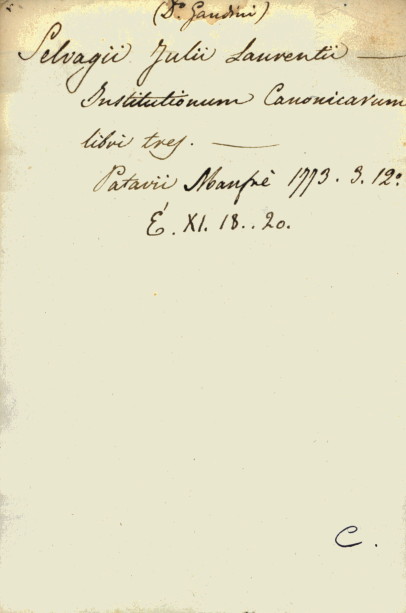 (Dn. Gandini)
Selvagii Julii Laurentii —
Institutionum Canonicarum
libri tres. —
Patavii Manfrè 1773. 3. 12º
É. XI. 18..20.
C.